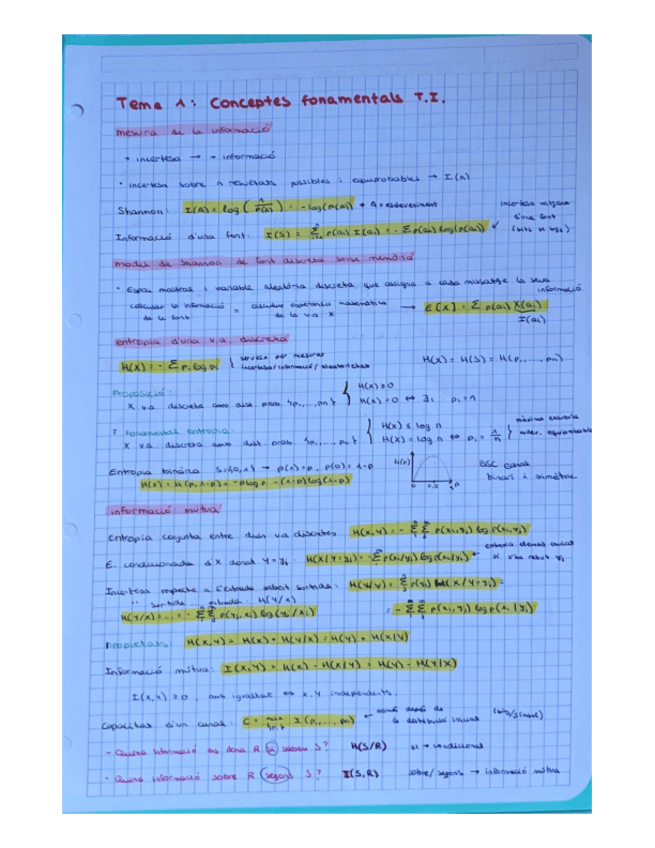 Tema 1: Conceptes fonamentals T.I.
mesura de la informació
+ incertesa → + informació
· incertesa sobre n resultats possibles i equiprobables → I(n)
Shannon: I(A) = log (1/p(a)) = -log(p(a)) + A = esdeveniment
incertesa mitjana d'una font
Informació d'una font: I(S) = Σ p(ai) I(ai) = - Σ p(ai) log(p(ai)) (bits si log2)
model de Shannon de font discreta sense memòria
· Espai mostral i variable aleatòria discreta que assigna a cada missatge la seva informació
calcular la informació de la font = calcular esperança matemàtica de la v.a X → E[X] = Σ p(ai) X(ai)
I(ai)
entropia d'una v.a. discreta
H(X) = - Σ pi log pi } serveix per mesurar incertesa/informació/aleatorietat H(X) = H(S) = H(p1, ..., pn)
Proposició:
X v.a. discreta amb dist. prob. {p1, ..., pn} { H(X) ≥ 0
H(X) = 0 ⇔ ∃i pi = 1
T. Fonamental entropia:
X v.a. discreta amb dist. prob. {p1, ..., pn} { H(X) ≤ log n
H(X) = log n ⇔ pi = 1/n } màxima entropia
Entropia binària S={0,1} → p(1)=p, p(0)=1-p
H(X) = H(p, 1-p) = -p log p - (1-p) log(1-p)
H(p)
0 0.5 1 p
BSC canal binari i simètric
informació mútua
Entropia conjunta entre dues va discretes H(X,Y) = - ΣΣ p(xi,yj) log p(xi,yj)
E. condicionada d'X donat Y=yj: H(X/Y=yj) = - Σ p(xi/yj) log p(xi/yj)
Incertesa respecte a l'entrada sabent sortida: H(X/Y) = Σ p(yj) H(X/Y=yj) =
" sortida " entrada: H(Y/X)
H(Y/X) = ... = - ΣΣ p(yj, xi) log (yj/xi) = - ΣΣ p(xi, yj) log p(xi|yj)
Propietats: H(X,Y) = H(X) + H(Y/X) = H(Y) + H(X|Y)
Informació mútua: I(X,Y) = H(X) - H(X/Y) = H(Y) - H(Y|X)
I(X,Y) ≥ 0, amb igualtat ⇔ X,Y independents.
Capacitat d'un canal: C = max I(p1, ..., pn) ← només depèn de la distribució inicial (bits/símbol)
- Quina informació es dona R si sabem S? H(S/R) si → condicional
- Quina informació sobre R segons S? I(S,R) sobre/segons → informació mútua